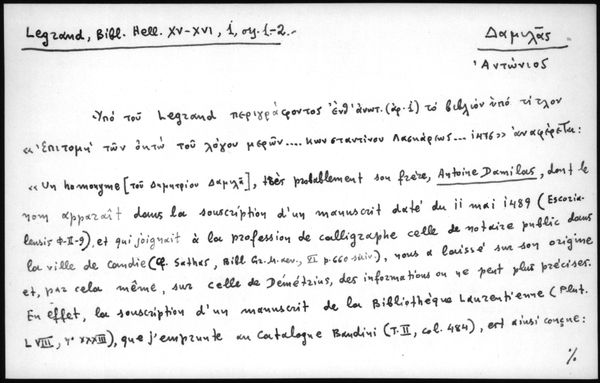 Legrand, Bibl. Hell. XV-XVI, 1, σσ. 1-2.-
Δαμιλᾶς
Ἀντώνιος
Ὑπό τοῦ Legrand περιγράφοντος ἐνθ' ἀνωτ. (ἀρ. 1) τό βιβλίον ὑπό τίτλον
«Ἐπιτομή τῶν ὀκτώ τοῦ λόγου μερῶν.... Κωνσταντίνου Λασκάρεως... 1476» ἀναφέρεται:
«Un homonyme [τοῦ Δημητρίου Δαμιλᾶ], très probablement son frère, Antoine Damilas, dont le
nom apparaît dans la souscription d'un manuscrit daté du 11 mai 1489 (Escoria-
lensis Φ-II-9), et qui joignait à la profession de calligraphe celle de notaire public dans
la ville de Candie (cf. Sathas, Bibl. Gr. M. aev., VI p. 660 suiv), nous a laissé sur son origine
et, par cela même, sur celle de Démétrius, des informations on ne peut plus précises.
En effet, la souscription d'un manuscrit de la Bibliothèque Laurentienne (Plut.
LVIII, nº XXXIII), que j'emprunte au Catalogue Bandini (T. II, col. 484), est ainsi conçue:
%